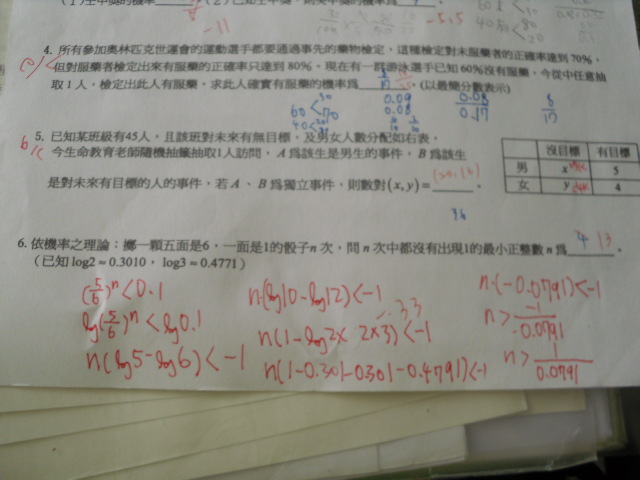 4. 所有參加奧林匹克世運會的運動選手都要通過事先的藥物檢定,這種檢定對未服藥者的正確率達到70%,
但對服藥者檢定出來有服藥的正確率只達到80%。現在有一群游泳選手已知60%沒有服藥,今從中任意抽
取1人,檢定出此人有服藥,求此人確實有服藥的機率為 。(以最簡分數表示)
5. 已知某班級有45人,且該班對未來有無目標,及男女人數分配如右表。
今生命教育老師隨機抽籤抽取1人訪問,A為該生是男生的事件,B為該生
是對未來有目標的人的事件,若A、B為獨立事件,則數對(x,y)= 。
沒目標 有目標
男 x 5
女 y 4
6. 依機率之理論:擲一顆五面是6,一面是1的骰子n次,問n次中都沒有出現1的最小正整數n為 。
(已知log2≈0.3010,log3≈0.4771)
(5/6)^n<0.1
lg(5/6)^n<lg0.1
n(lg5-lg6)<-1
n(lg10-lg12)<-1
n(1-lg2x 2x3)<-1
n(1-0.301-0.301-0.4791)<-1
n·(-0.0791)<-1
n>-1/-0.0791
n>1/0.0791